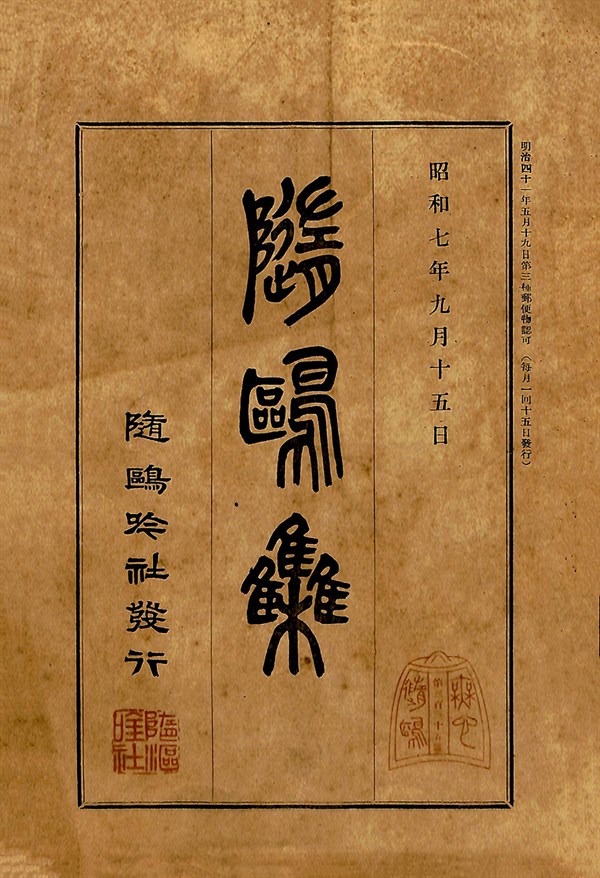 明治四十一年五月十九日第三種郵便物認可（每月一回十五日發行）
昭和七年九月十五日
隨鷗集
隨鷗吟社發行